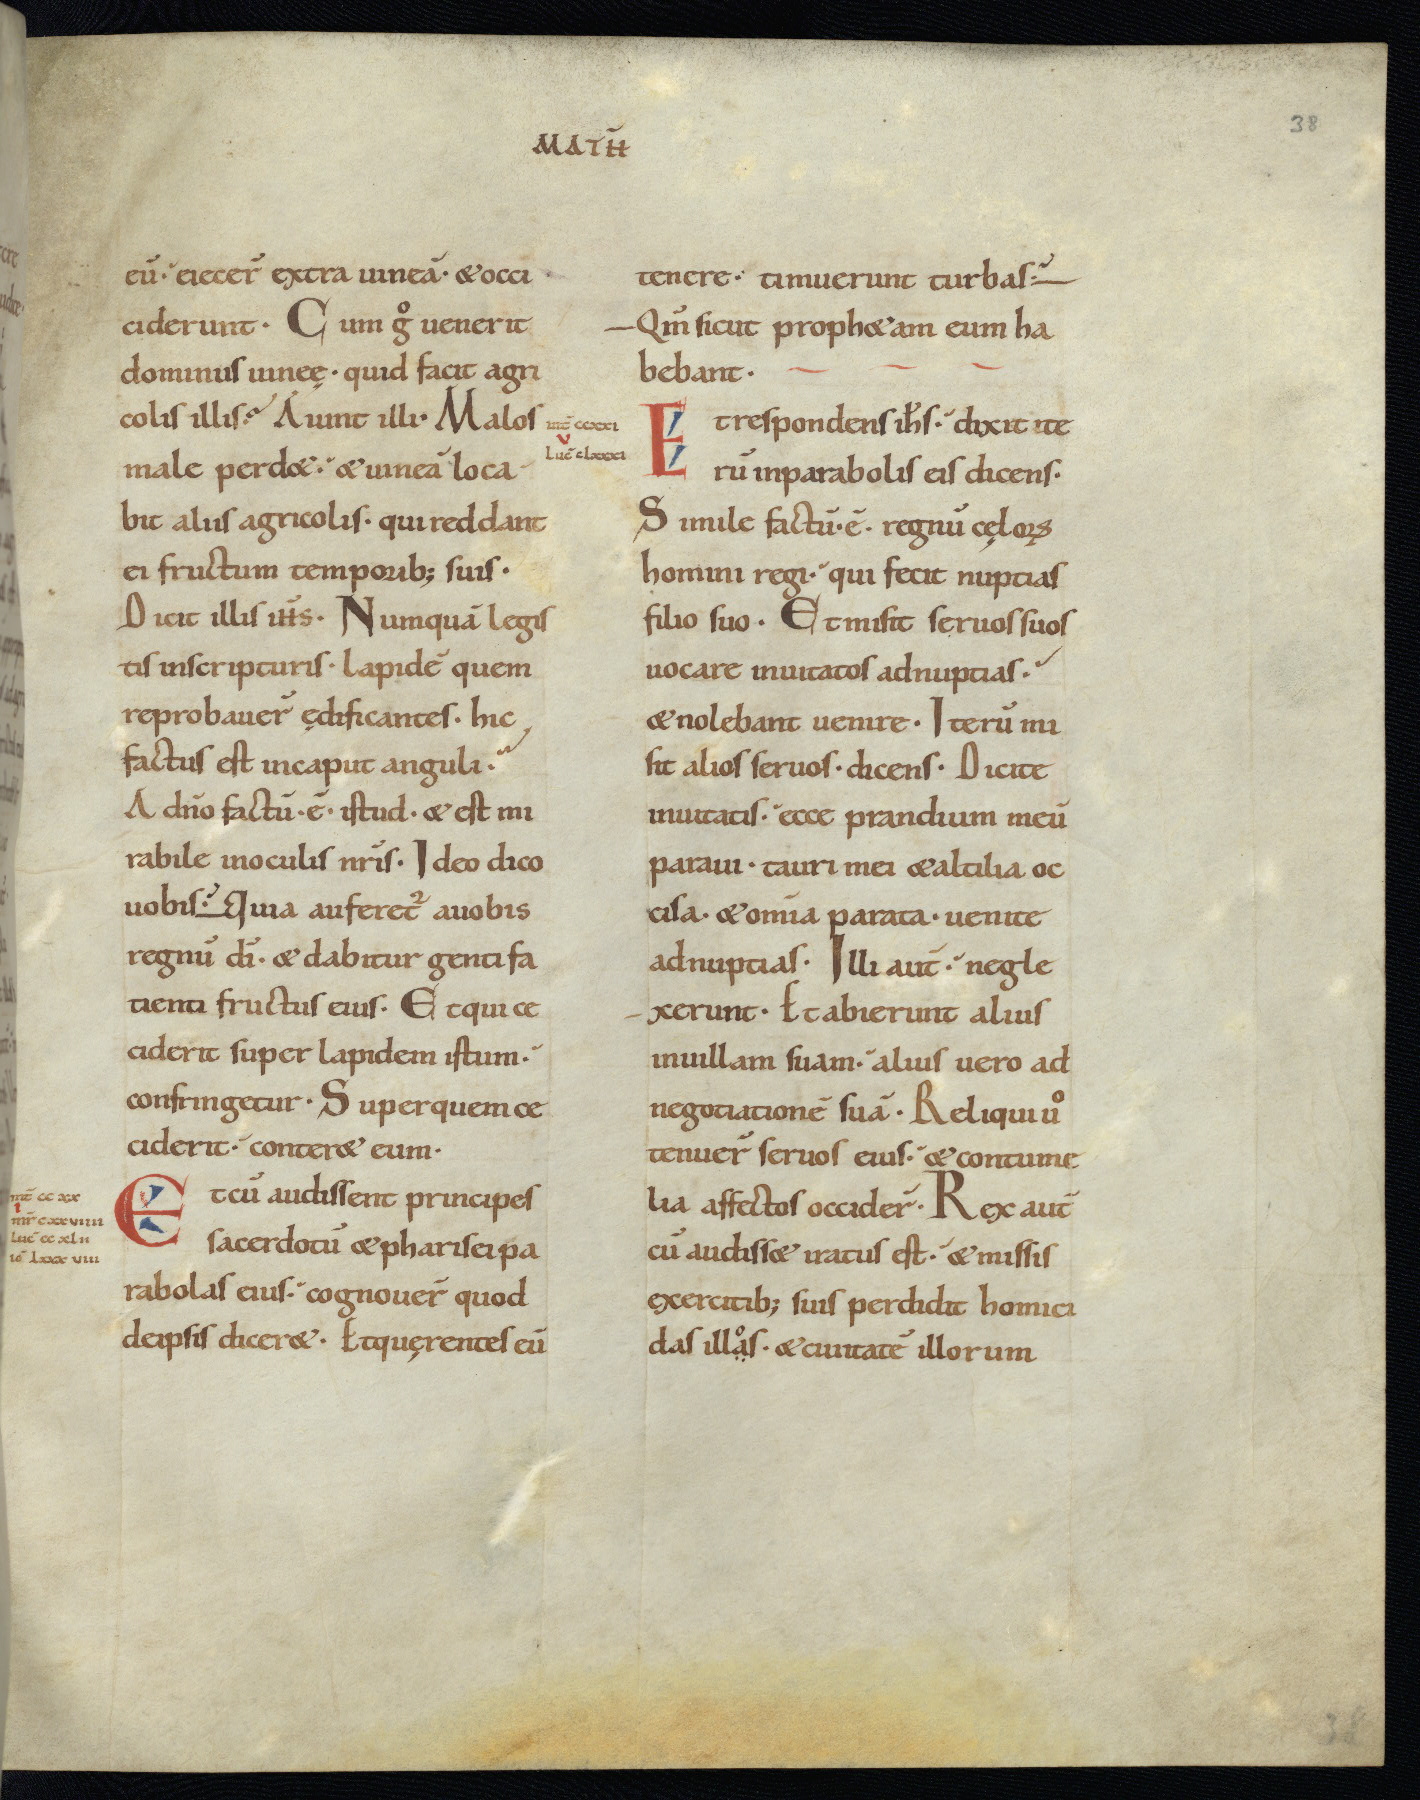 MATH̄
38
eū· eiecer̄ extra uineā· & occi
ciderunt· Cum gͦ uenerit
dominus uineę· quid facit agri
colis illis? Aiunt illi· Malos
male perd&· & uineā loca
bit aliis agricolis· qui reddant
ei fructum temporib; suis·
Dicit illis ih̄s· Numquā legis
tis inscripturis· lapidē quem
reprobauer̄ ędificantes· hic
factus est incaput anguli·
A dn̄o factū·ē· istud· & est mi
rabile inoculis nr̄is· Ideo dico
uobis· Quia auferet᷑ auobis
regnū dī· & dabitur genti fa
tienti fructus eius· Et qui ce
ciderit super lapidem istum·
confringetur· Super quem ce
ciderit· conter& eum·
mt̄ cc xx
i
mr̄ cxxviiii
Luc̄ cc xl ii
io͞ lxxxviii
Et cū audissent principes
sacerdotū & pharisei pa
rabolas eius· cognouer̄ quod
deipsis dicer&· Et quęrentes eū
tenere· timuerunt turbas·
Qm̄ sicut proph&am eum ha
bebant·
mt̄ ccxxi
v
Luc̄ clxxxi
Et respondens ih̄s· dixit ite
rū inparabolis eis dicens·
Simile factū·ē· regnū cęloꝝ
homini regi· qui fecit nuptias
filio suo· Et misit seruos suos
uocare inuitatos adnuptias·
& nolebant uenire· Iterū mi
sit alios seruos· dicens· Dicite
inuitatis· ecce prandium meū
paraui· tauri mei & altilia oc
cisa· & om̄ia parata· uenite
adnuptias· Illi aut̄· negle
xerunt· Et abierunt alius
inuillam suam· alius uero ad
negotiationē suā· Reliqui uͦ
tenuer̄ seruos eius· & contume
lia affectos occider̄· Rex aut̄
cū audiss& iratus est· & missis
exercitib; suis perdidit homici
das illaͦs· & ciuitatē illorum
38